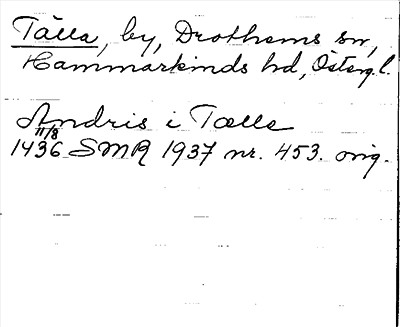 Tälla, by, Drothems sn,
Hammarkinds hd, Österg. l.
Andris i Tælle
11/8
1436 SMR 1937 nr. 453. orig.